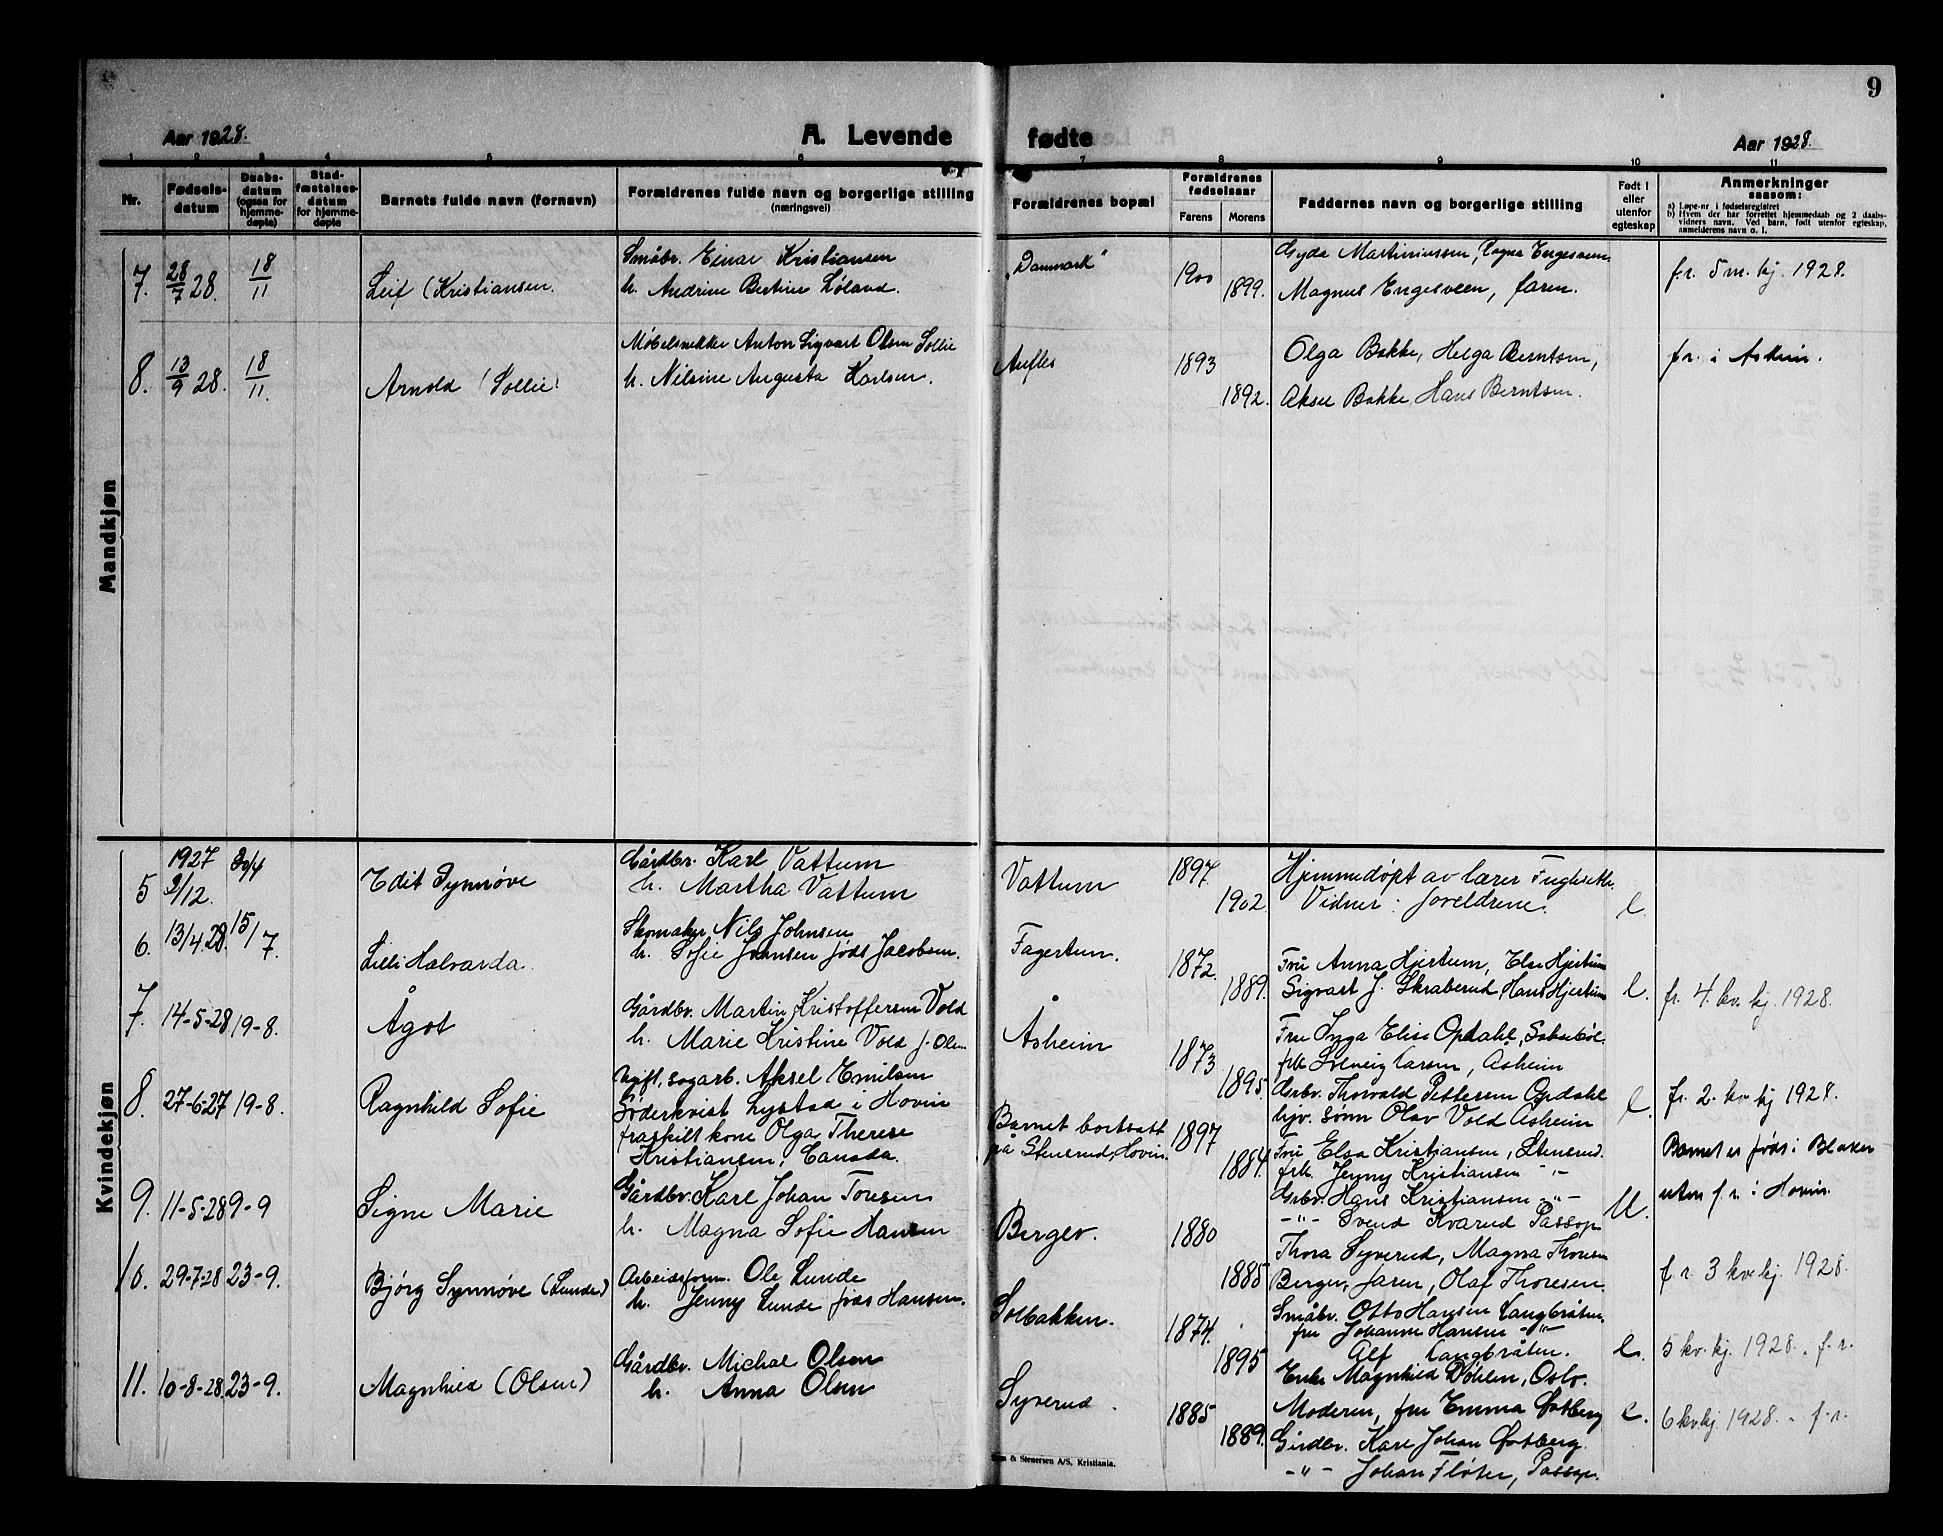 9
Aar 1928.
A. Levende
fødte
Aar 1928.
1 2 3 4 5 6 7 8 9 10 11
Nr.
Fødsels-
datum
Daabs-
datum
(ogsaa for
hjemme-
døpte)
Stad-
fæstelses-
datum
for hjemme-
døpte
Barnets fulde navn (fornavn)
Forældrenes fulde navn og borgerlige stilling
(næringsvei)
Forældrenes bopæl
Forældrenes
fødselsaar
Farens Morens
Faddernes navn og borgerlige stilling
Født i
eller
utenfor
egteskap
Anmerkninger
saasom:
a) Løpe-nr i fødselsregistret
b) Hvem der har forrettet hjemmedaab og 2 daabs-
vidners navn. Ved barn, født utenfor egteskap,
anmelderens navn o. l.
Mandkjøn
7. 28/7 28. 18/11 Leif (Kristiansen.
Småbr. Einar Kristiansen
h. Andrine Bertine Løland.
"Danmark"
1900
1899.
Gyda Martiniussen, Ragna Engesveen
Magnus Engesveen, faren.
f.r. 5 m. kj. 1928.
8. 13/9 28. 18/11. Arnold (Sollie)
Møbelsnekker Anton Sigvart Olsen Sollie
h. Nilsine Augusta Karlsen.
1893
1892.
Olga Bakke, Helga Berntsen,
Aksel Bakke, Hans Berntsen.
f.r. i Askim.
Kvindekjøn
5 1927 2/12. 30/4 Edit Synnøve
Gårdbr. Karl Vattum
h. Martha Vattum
Vattum
1897.
1902.
Hjemmedøpt av lærer
Vidner: foreldrene.
6. 13/4 28. 15/7. Lilli Halvarda.
Skomaker Nils Johnsen
h. Sofie Johnsen født Jacobsen.
Fagertun.
1872.
1889.
Fru Anna Hjertum, Else Hjertum
Sigvart J. Skraberud, Hans Hjertum
fr. 4. kv. kj. 1928.
7. 14-5-28 19-8. Ågot
Gårdbr. Martin Kristoffersen Vold
h. Marie Kristine Vold f. Olsen
Åsheim
1873
1895.
Fru Inga Elise Opdahl,
frk. Solveig Larsen, Åsheim
Thorvald Pettersen Opdahl
sønn Olav Vold Åsheim
fr. 2. kv. kj 1928.
8. 27-6-27 19-8. Ragnhild Sofie
Ugift. sagarb. Aksel Emilsen
Söderkvist Lystad i Hovin
fraskilt kone Olga Therese
Kristiansen, Canada.
Barnet bortsatt
på Stenerud, Hovin.
1897
1884.
Fru Elsa Kristiansen, Stenerud.
frk. Jenny Kristiansen -"-
Grbr. Hans Kristiansen -"-
-"- Svend Kvarud Passop
U.
Barnet er født i Blaker
uten f.r. i Hovin.
9. 11-5-28 9-9 Signe Marie
Gårdbr. Karl Johan Toresen
h. Magna Sofie Hansen
Berger.
1880
1885
Thora Syverud, Magna Thoresen
Berger, faren, Olaf Thoresen.
f.r. 3 kv. kj. 1928.
10. 29-7-28 23-9. Bjørg Synnøve (Lunde)
Arbeidsform. Ole Lunde
h. Jenny Lunde født Hansen.
Solbakken.
1874.
1895
Småbr. Otto Hansen Langbråten.
fru Johanne Hansen -"-
Alf Langbråten.
Enke Magnhild Døhlen, Oslo.
5 kv. kj. 1928. f.r.
11. 10-8-28. 23-9. Magnhild (Olsen)
Gårdbr. Michal Olsen
h. Anna Olsen
Syverud.
1885
1889.
Moderen, fru Emma Østberg
Gårdbr. Karl Johan Østberg.
-"- Johan Fløter, Passop.
6 kv. kj. 1928. f.r.
& Stenersen A/S, Kristiania.